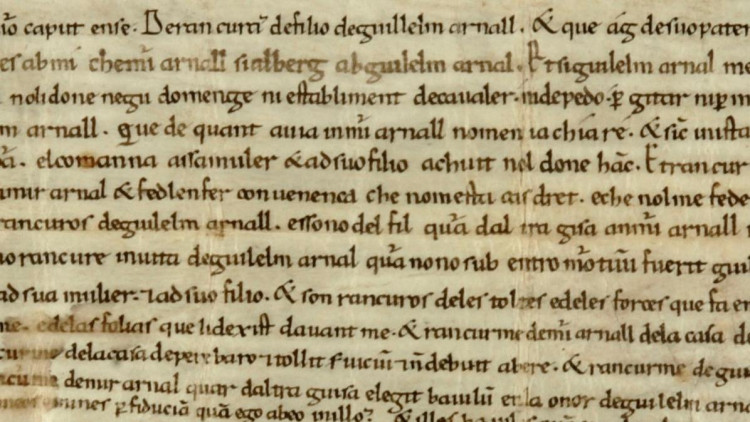 caput ense. De rancuram defilio deguillelm arnall. & que ag desuo pater
es ab mi chemir arnall si alberg ab guilelm arnal. Et si guilelm arnal me
noli done negu domenge ni establiment decavaler. ni depedo. per gitar ni per
m arnall. que de quant avia in mir arnall nomen ia chiare. & sic in ista
elcomanna assamuler & ad suo filio achuit nol done hac. Et rancur
amir arnal & fedlenfer convenenca che nomesta cas dret. e che nol me fede
rancuros deguilelm arnall. essono del fil qua dal tra gisa amir arnall
rancure in vita deguilelm arnal qua no no sub entro mortuum fuerit guil
ad sua mulier. & ad suo filio. & son rancuros deles toltes edeles forces que fa en
me. edelas folias que li dexist davant me. & rancurme demir arnall dela casa de
delacasa depere baro & tollit servicium in debuit abere. & rancurme deguil
demir arnal quar daltra guisa elegit baiulum en la onor deguilelm arnal
omnes per fiduciam quam ego abeo in illos & illos